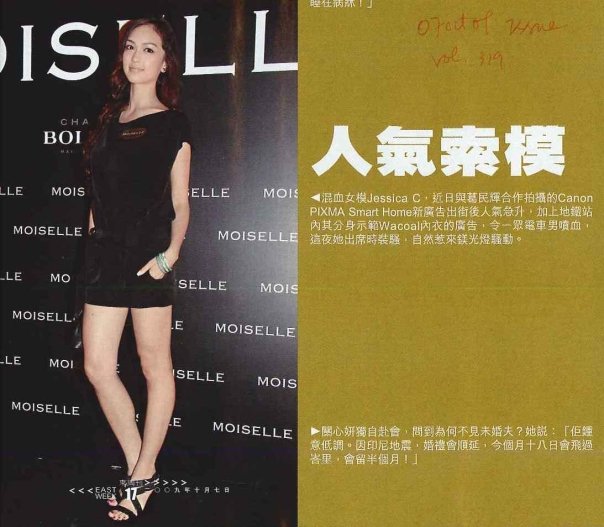 睡在病牀！」
07 oct 09 issue
vol. 319
人氣索模
◀混血女模Jessica C，近日與葛民輝合作拍攝的Canon
PIXMA Smart Home新廣告出街後人氣急升，加上地鐵站
內其分身示範Wacoal內衣的廣告，令一眾電車男噴血，
這夜她出席時裝騷，自然惹來鎂光燈騷動。
▶關心妍獨自赴會，問到為何不見未婚夫？她説：「佢鍾
意低調。因印尼地震，婚禮會順延，今個月十八日會飛過
峇里，會留半個月！」
OISELL
CHA
BOI
MOISELLE
MOISELLE
MOISELLE
MOISELLE
MOISELLE
MOISELLE
MOISELLE
東周刊>>>>>
<<<EAST WEEK 17 二〇〇九年十月七日